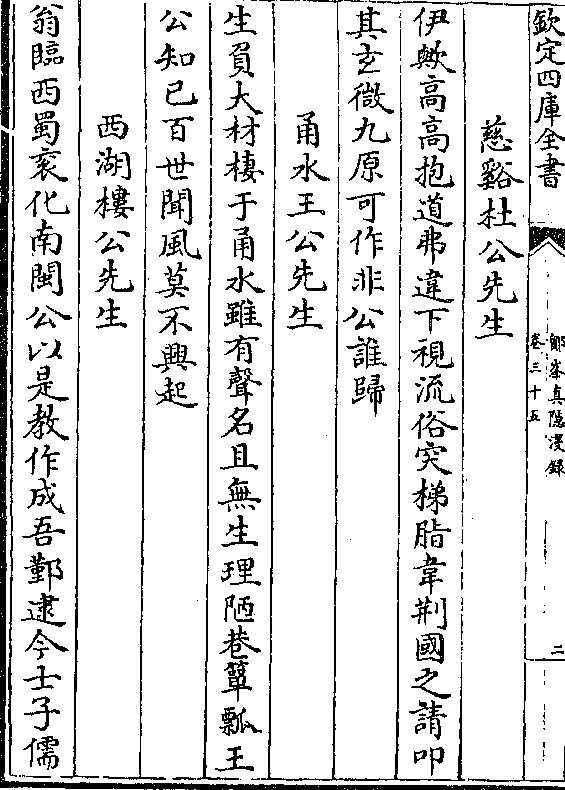 欽定四庫全書
鄮峯真隱漫録
卷三十五
二
慈谿杜公先生
伊歟高高抱道弗違下視流俗突梯脂韋荆國之請叩
其玄微九原可作非公誰歸
甬水王公先生
生負大材棲于甬水雖有聲名且無生理陋巷簞瓢王
公知已百世聞風莫不興起
西湖樓公先生
翁臨西蜀衮化南閩公以是教作成吾鄞逮今士子儒